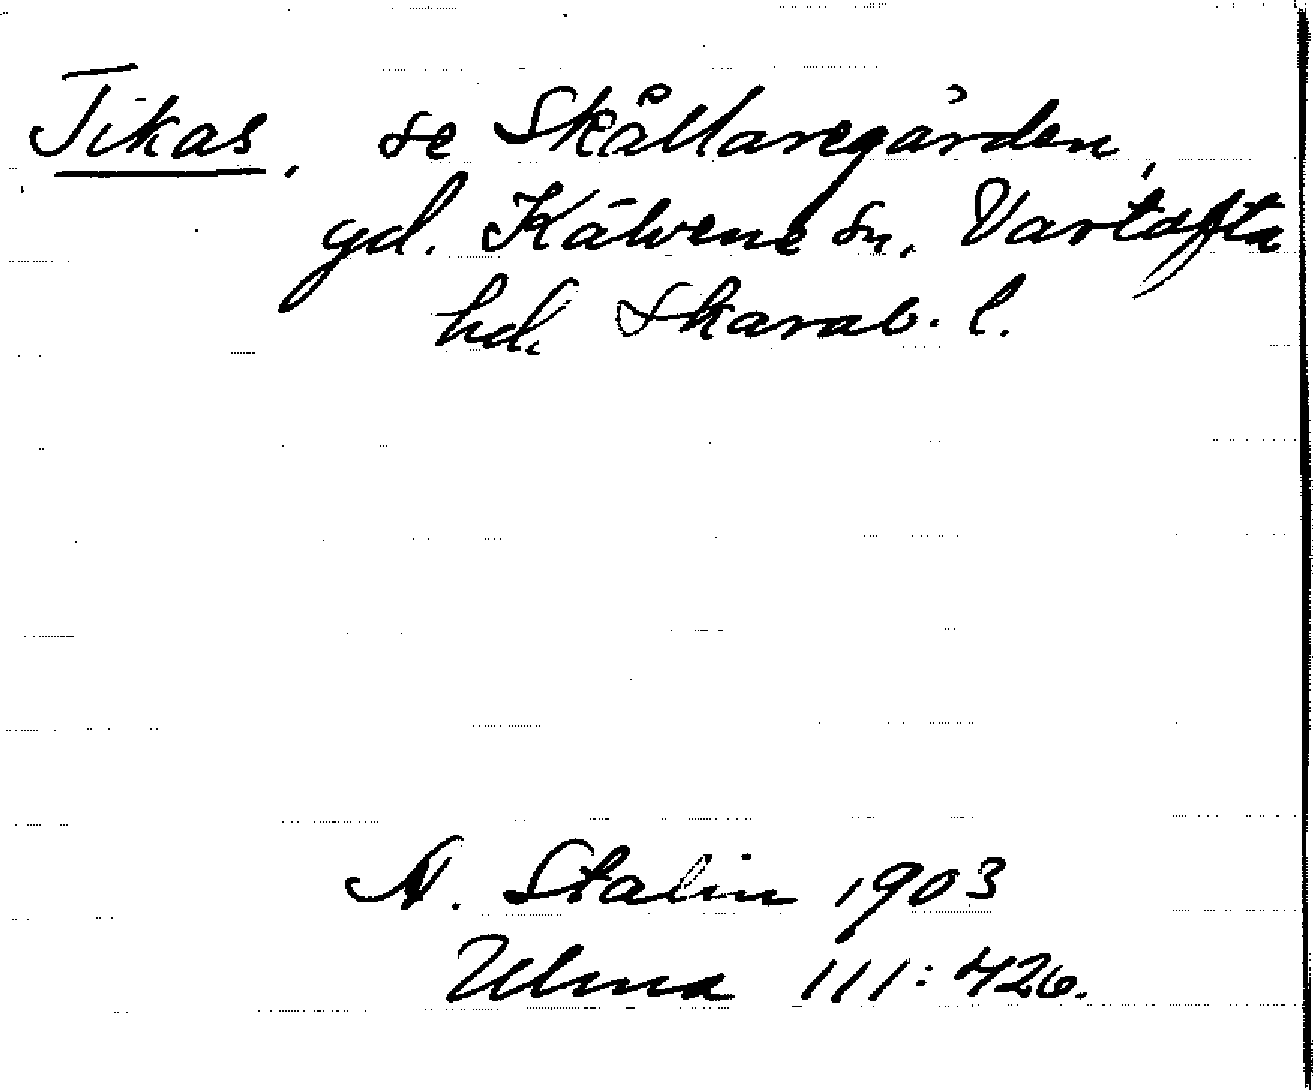 Tikas, se Skållaregården,
gd. Kälvene sn. Vartofta
hd. Skarab. l.
N. Stalin 1903
Ulma 111:426.